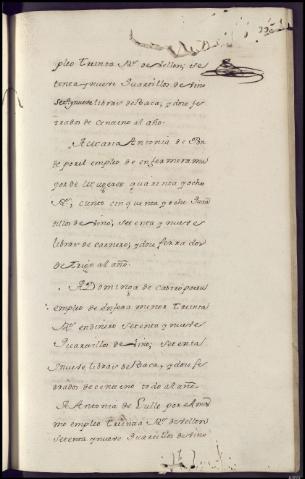 pleo treinta Rs. de Vellon; se
tenta y nueve Quartillos de vino
setta y nueve libras de Baca, y dos fe
rrados de Centeno al año.
A Maria Antonia de
de por el empleo de enfermera mu
ger de quarenta y ocho
Rs., ciento cinquenta y ocho Quar
tillos de vino, setenta y nueve
libras de carnero, y dos ferrados
de trigo al año.
A Dominga de Castro por su
empleo de menor treinta
Rs. en dinero setenta y nueve
Quartillos de vino, setenta
y nueve libras de Baca, y dos fe
rrados de centeno todo al año.
A Antonia de Lulle por el mis
mo empleo treinta Rs. de Vellon
setenta y nueve Quartillos de vino